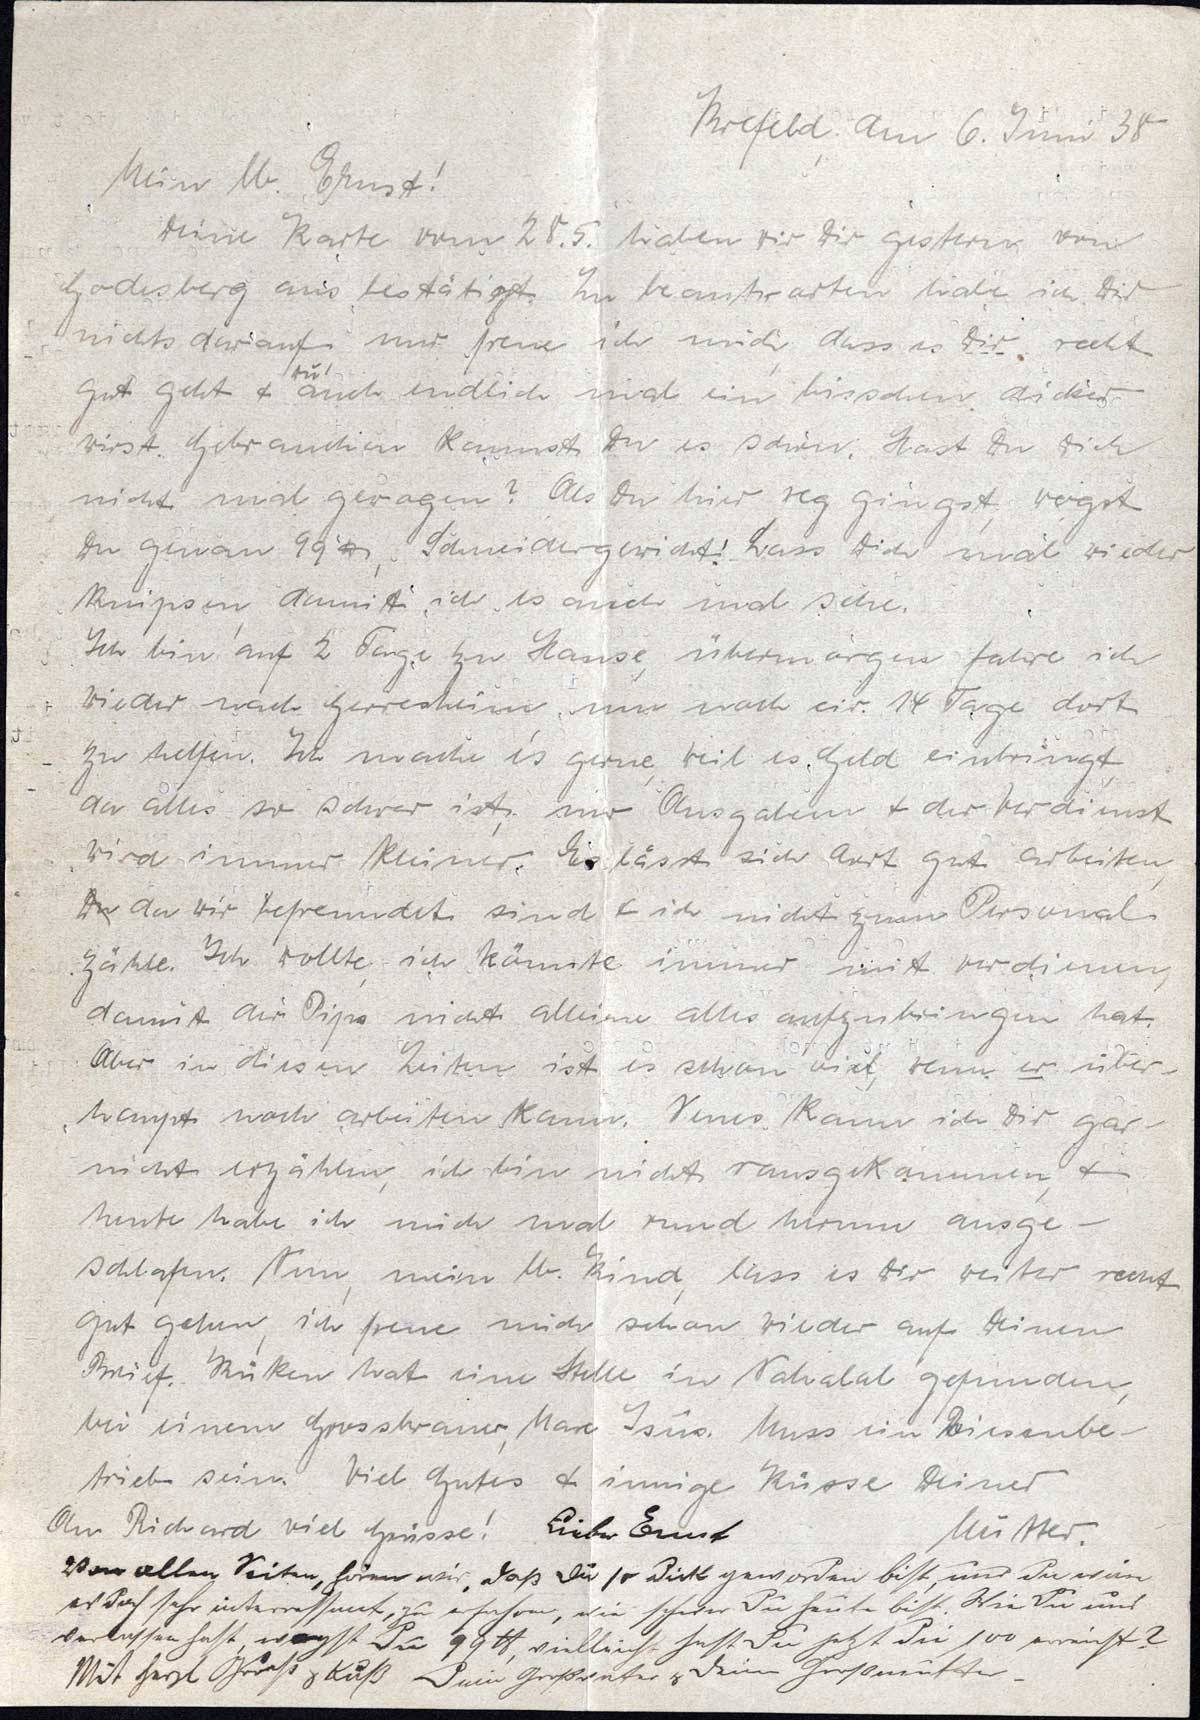 Krefeld, den 6. Juni 38
Mein lb. Ernst!
Deine Karte vom 28.5. haben wir Dir gestern von
Godesberg aus bestätigt. Zu beantworten habe ich Dir
nichts darauf, nur freue ich mich, dass es Dir recht
gut geht & du auch endlich mal ein bisschen dicker
wirst. Gebrauchen kannst Du es schon. Hast Du Dich
nicht mal gewogen? Als Du hier weg gingst, wogst
Du genau 99 ℔, Schneidergewicht! Lass Dich mal wieder
knipsen, damit ich es auch mal sehe.
Ich bin auf 2 Tage zu Hause, übermorgen fahre ich
wieder nach Gerresheim, um noch cir. 14 Tage dort
zu helfen. Ich mache es gerne, weil es Geld einbringt,
da alles so schwer ist, nur Ausgaben & der Verdienst
wird immer kleiner. Es lässt sich dort gut arbeiten,
da wir befreundet sind & ich nicht zum Personal
zähle. Ich wollte, ich könnte immer mit verdienen,
damit der Pips nicht alleine alles aufzubringen hat.
Aber in diesen Zeiten ist es schon viel, wenn er über-
haupt noch arbeiten kann. Neues kann ich Dir gar-
nicht erzählen, ich bin nicht rausgekommen, &
heute habe ich mich mal rund herum ausge-
schlafen. Nun, mein lb. Kind, lass es Dir weiter recht
gut gehen, ich freue mich schon wieder auf Deinen
Brief. Küken hat eine Stelle in Nahalal gefunden,
bei einem Grossbauer, Muss ein Riesenbe-
trieb sein. Viel Gutes & innige Küsse Deiner
An Richard viel Grüsse! Lieber Ernst Mutter.
Von allen Seiten, hören wir, daß Du so dick geworden bist, und Du wäre
es doch sehr interressant, zu erfahren, wie schwer Du heute bist. Wie Du uns
verlassen hast, wogst Du 99 ℔, vielleicht hast Du jetzt die 100 erreicht?
Mit herzl Gruß & Kuß Dein Großvater & Deine Großmutter